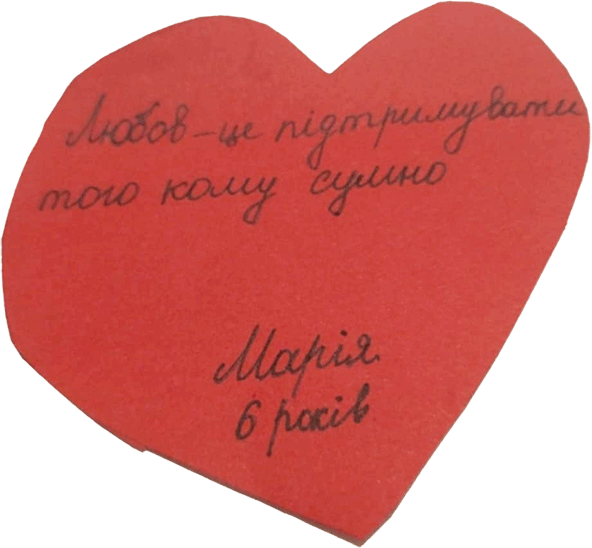 Любов – це підтримувати
того кому сумно
Марія
6 років